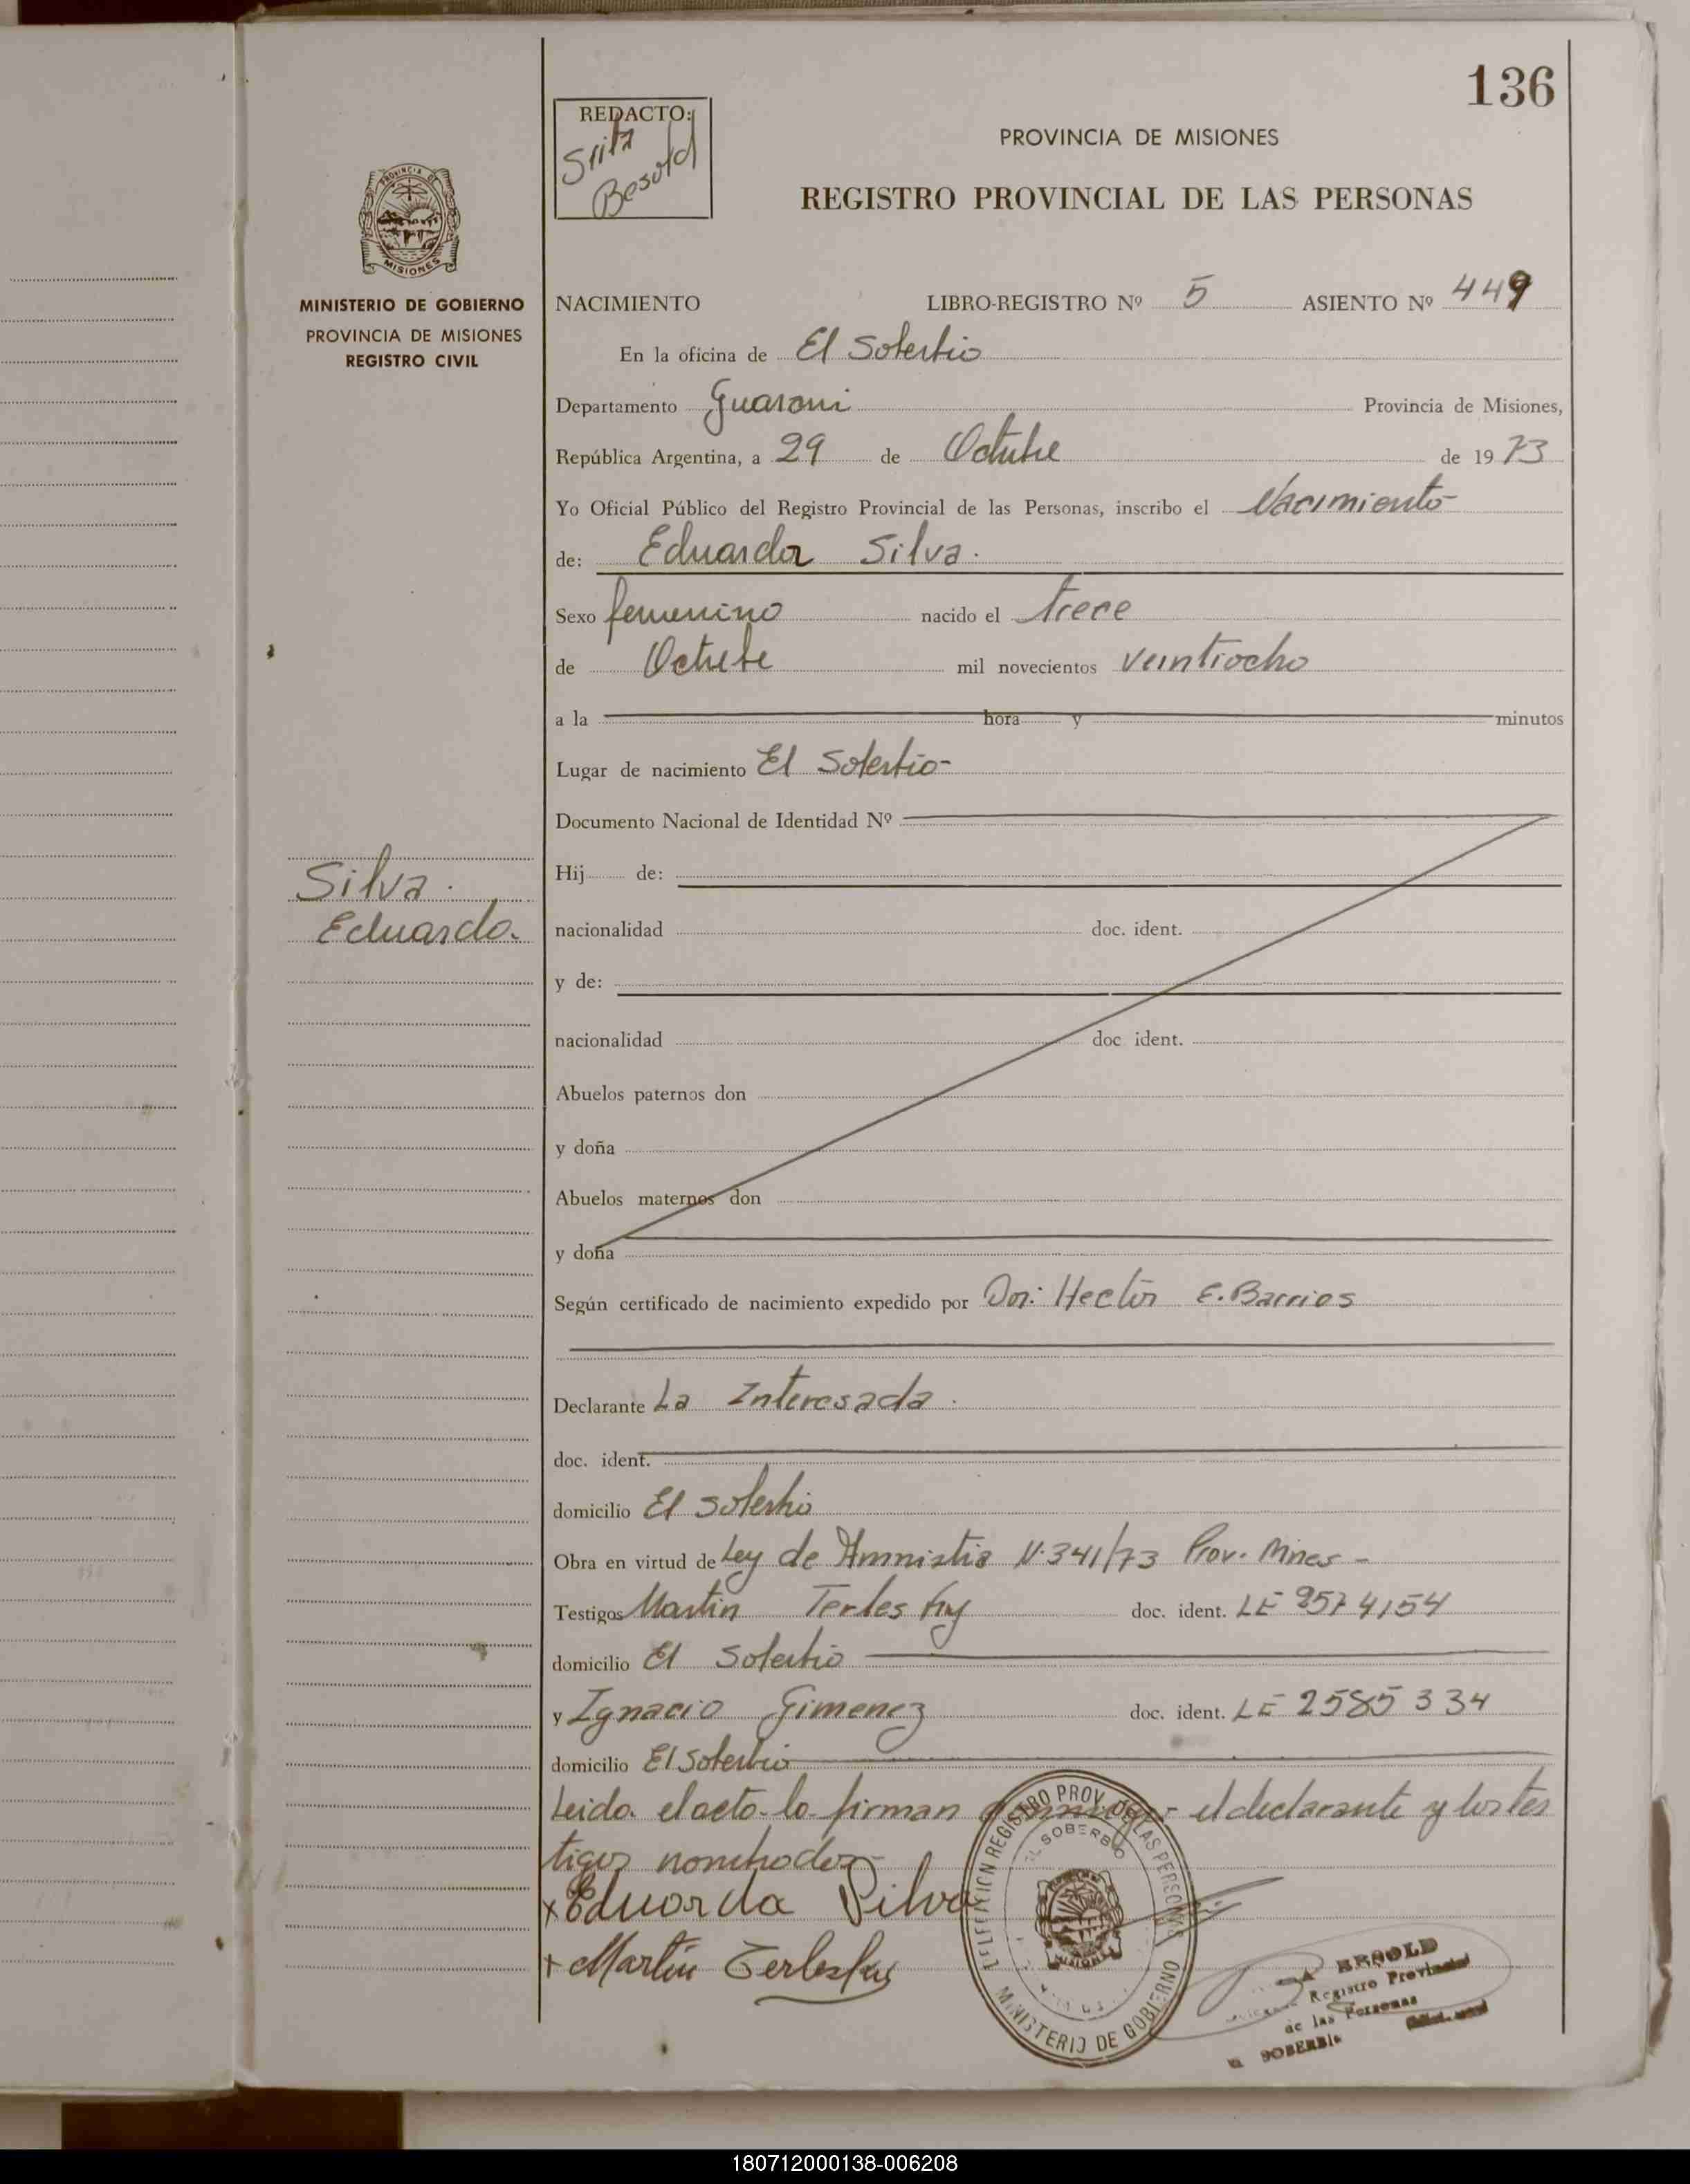 136
REDACTO:
Srita
Besold
PROVINCIA DE MISIONES
REGISTRO PROVINCIAL DE LAS PERSONAS
PROVINCIA DE
MISIONES
MINISTERIO DE GOBIERNO
PROVINCIA DE MISIONES
REGISTRO CIVIL
NACIMIENTO LIBRO-REGISTRO Nº 5 ASIENTO Nº 449
En la oficina de El Soberbio
Departamento Guarani Provincia de Misiones,
República Argentina, a 29 de Octubre de 1973
Yo Oficial Público del Registro Provincial de las Personas, inscribo el Nacimiento
de: Eduarda Silva.
Sexo femenino nacido el trece
de Octubre mil novecientos veintiocho
a la hora y minutos
Lugar de nacimiento El Soberbio-
Documento Nacional de Identidad Nº
Silva.
Eduarda.
Hij de:
nacionalidad doc. ident.
y de:
nacionalidad doc ident.
Abuelos paternos don
y doña
Abuelos maternos don
y doña
Según certificado de nacimiento expedido por Dor: Hector E. Barrios
Declarante La Interesada.
doc. ident.
domicilio El Soberbio
Obra en virtud de Ley de Amnistia N. 341/73 Prov. Mnes-
Testigos Martin Terlesky doc. ident. LE
domicilio El Soberbio
y Ignacio Gimenez doc. ident. LE 2585334
domicilio El Soberbio
Leida el acta lo firman el declarante y los tes
tigos nombrados-
x Eduarda Silva
+ Martin Terlesky
REGISTRO PROV. DE LAS PERSONAS
EL SOBERBIO
MISIONES
MINISTERIO DE GOBIERNO
BESOLD
Registro Provincial
de las Personas
SOBERBIO
180712000138-006208